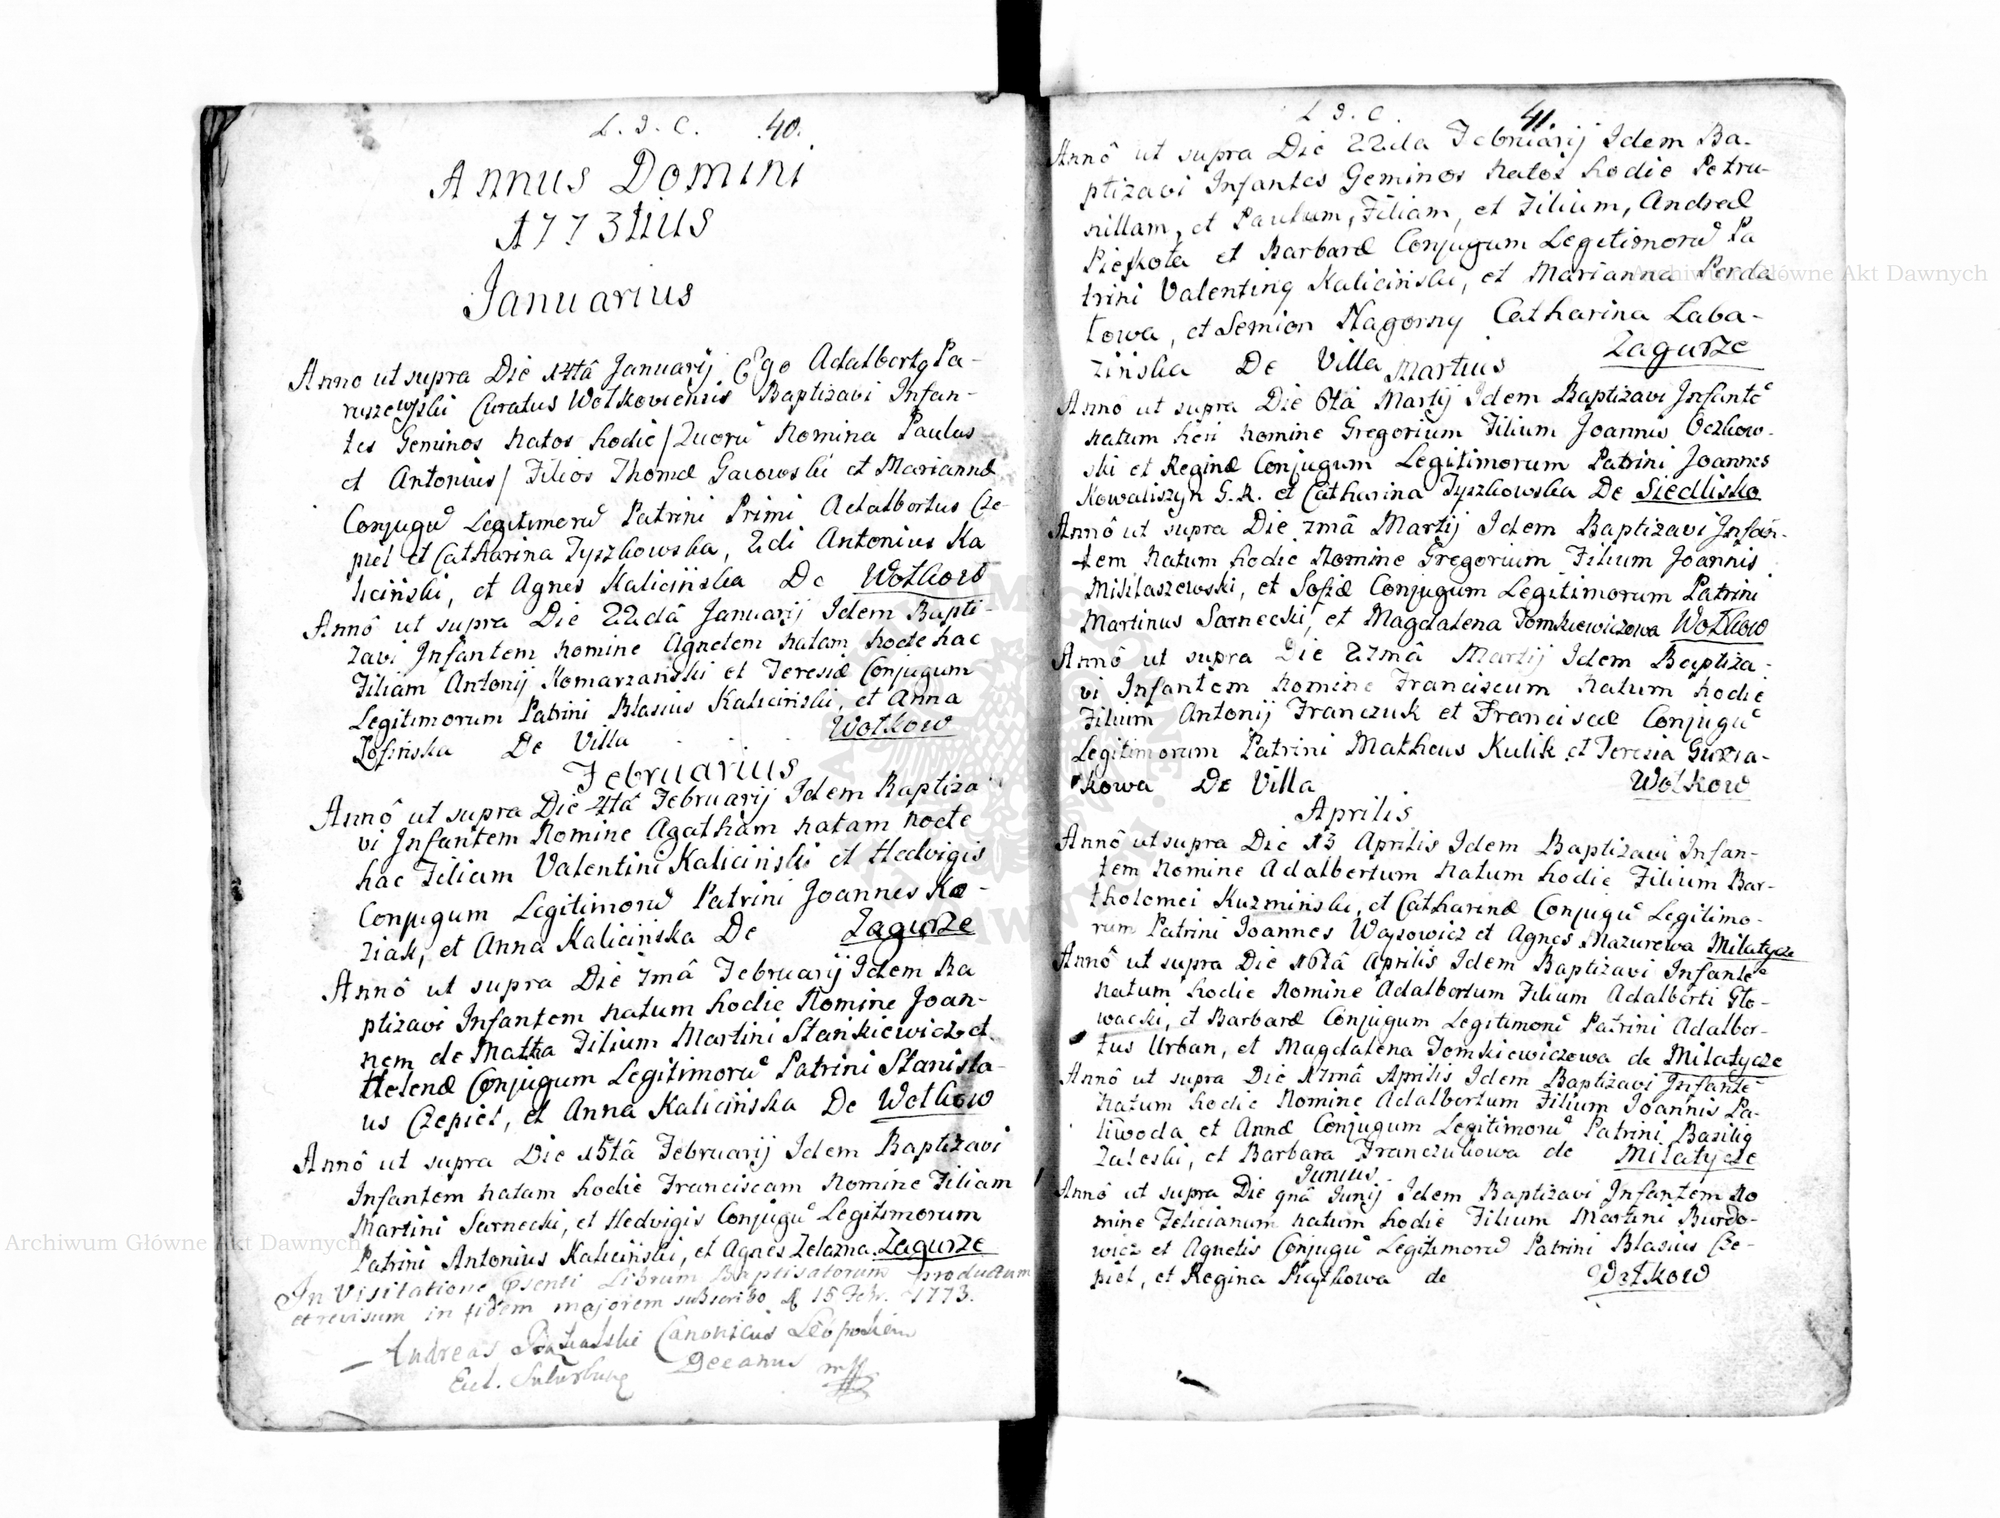 L. J. C. 40.
Annus Domini
1773tius
Januarius
Anno ut supra Die 14tâ Januarij Ego Adalbertq Pa-
ruszewski Curatus Wołkoviensis Baptizavi Infan-
tes Geminos natos hodie / Quorū Nomina Paulus
et Antonius / Filios Thomæ Gacowski et Mariannæ
Conjugū Legitimorū Patrini Primi Adalbertus Cze-
piel et Catharina Tyszkowska, 2di Antonius Ka
liciński, et Agnes Kalicińska De Wołkow
Annô ut supra Die 22dâ Januarij Idem Bapti-
zavi Infantem nomine Agnetem natam nocte hac
Filiam Antonij Komarzański et Teresiæ Conjugum
Legitimorum Patrini Blasius Kaliciński, et Anna
Zofińska De Villa Wołkow
Februarius
Annô ut supra Die 4tâ Februarij Idem Baptiza
vi Infantem Nomine Agatham natam nocte
hac Filiam Valentini Kaliciński et Hedvigis
Conjugum Legitimorū Patrini Joannes Ko-
ziak, et Anna Kalicińska De Zagurze
Annô ut supra Die 7mâ Februarij Idem Ba
ptizavi Infantem natum hodie Nomine Joan-
nem de Matha Filium Martini Stankiewicz et
Helenæ Conjugum Legitimorū Patrini Stanisła-
us Czepiel, et Anna Kalicińska De Wołkow
Annô ut supra Die 15tâ Februarij Idem Baptizavi
Infantem natam hodie Franciscam Nomine Filiam
Martini Sarnecki, et Hedvigis Conjugū Legitimorum
Patrini Antonius Kaliciński, et Agnes Zelazna Zagurze
In Visitatione Psenti Librum Baptisatorum productum
et revisum in fidem majorem subscribo d 18 Febr. 1773.
Andreas Canonicus Leopolien
Decanus mpp
L J. C. 41.
Annô ut supra Die 22da Februarij Idem Ba-
ptizavi Infantes Geminos natos hodie Petru-
nillam, et Paulum, Filiam, et Filium, Andreæ
Pieskota et Barbaræ Conjugum Legitimorū Pa
trini Valentinq Kaliciński, et Marianna Perda
towa, et Semion Nagorny Catharina Laba-
zinska De Villa Zagurze
Martius
Annô ut supra Die 6tâ Martij Idem Baptizavi Infantē
natum heri nomine Gregorium Filium Joannis Oczkow-
ski et Reginæ Conjugum Legitimorum Patrini Joannes
Kowaliszyn G. R. et Catharina Tyszkowska De Siedlisko
Annô ut supra Die 7mâ Martij Idem Baptizavi Infan-
tem natum hodie Nomine Gregorium Filium Joannis
Mikłaszewski, et Sofiæ Conjugum Legitimorum Patrini
Martinus Sarnecki, et Magdalena Tomkiewiczowa Wołkow
Annô ut supra Die 27mâ Martij Idem Baptiza-
vi Infantem nomine Franciscum natum hodie
Filium Antonij Franczuk et Franciscæ Conjugū
Legitimorum Patrini Matheus Kulik et Teresia Guzia-
kowa De Villa Wołkow
Aprilis
Annô ut supra Die 13 Aprilis Idem Baptizavi Infan-
tem Nomine Adalbertum natum hodie Filium Bar-
tholomei Kuzmiński, et Catharinæ Conjugū Legitimo-
rum Patrini Joannes Waysowicz et Agnes Mazurowa Miłatycze
Annô ut supra Die 16tâ Aprilis Idem Baptizavi Infantē
natum hodie Nomine Adalbertum Filium Adalberti Gło-
wacki, et Barbaræ Conjugum Legitimorū Patrini Adalber-
tus Urban, et Magdalena Tomkiewiczowa de Miłatycze
Annô ut supra Die 17mâ Aprilis Idem Baptizavi Infantē
natum hodie Nomine Adalbertum Filium Joannis Pa-
liwoda et Annæ Conjugum Legitimorū Patrini Basiliq
Zaleski, et Barbara Franczukowa de Miłatycze
Junius.
Annô ut supra Die 9nâ Junij Idem Baptizavi Infantem No
mine Felicianum natum hodie Filium Martini Burdo-
wicz et Agnetis Conjugū Legitimorū Patrini Blasius Cze-
piel, et Regina Piątkowa de Wołkow
Archiwum Główne Akt Dawnych
Archiwum Główne Akt Dawnych